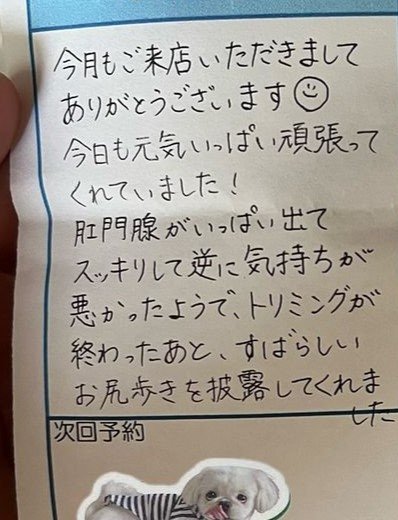 今月もご来店いただきまして
ありがとうございます
今日も元気いっぱい頑張って
くれていました!
肛門腺がいっぱい出て
スッキリして逆に気持ちが
悪かったようで、トリミングが
終わったあと、すばらしい
お尻歩きを披露してくれま
した
次回予約